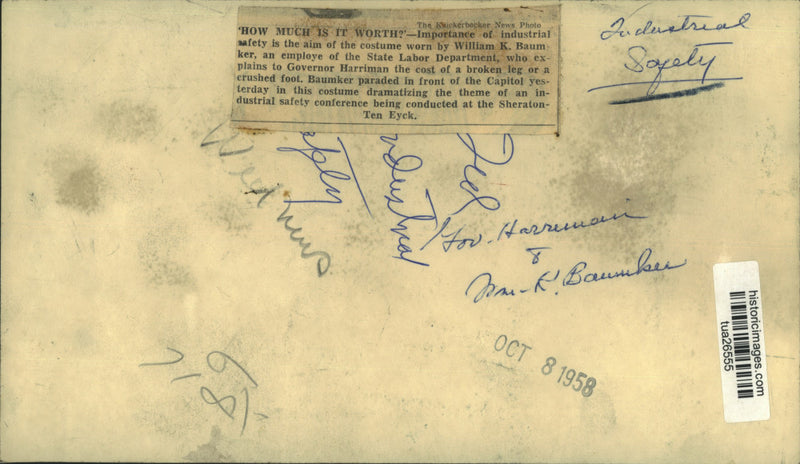 The Knickerbocker News Photo
'HOW MUCH IS IT WORTH?'—Importance of industrial
safety is the aim of the costume worn by William K. Baum-
ker, an employe of the State Labor Department, who ex-
plains to Governor Harriman the cost of a broken leg or a
crushed foot. Baumker paraded in front of the Capitol yes-
terday in this costume dramatizing the theme of an in-
dustrial safety conference being conducted at the Sheraton-
Ten Eyck.
Industrial
Safety
Gov. Harriman
&
Wm. K. Baumker
OCT 8 1958
historicimages.com
tua26555